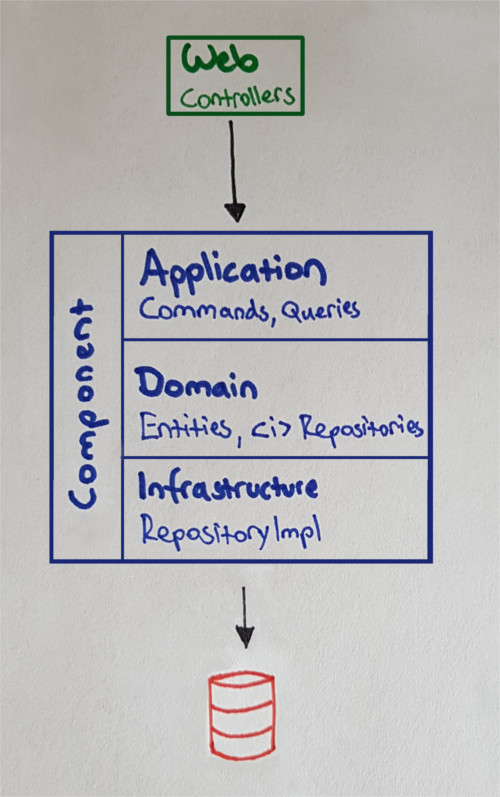 Web
Controllers
Component
Application
Commands, Queries
Domain
Entities, <i> Repositories
Infrastructure
RepositoryImpl